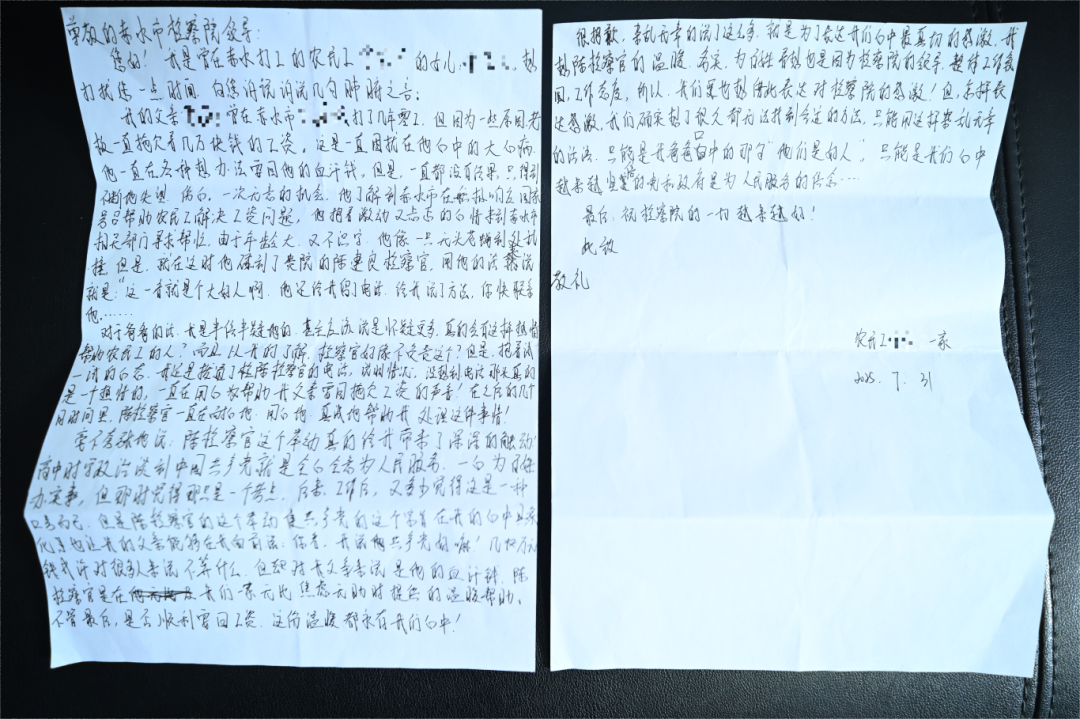 尊敬的赤水市检察院领导：
您好！我是曾在赤水打工的农民工 的女儿， 想
打扰您一点时间，向您诉说诉说几句肺腑之言：
我的父亲 曾在赤水市 打了几年零工，但因为一些原因老
板一直拖欠着几万块钱的工资，这是一直困扰在他心中的大心病，
他一直在各种想办法要回他的血汗钱，但是，一直都没有结果，只得到
不断地失望、伤心，一次无意的机会，他了解到赤水市在积极响应国家
号召帮助农民工解决工资问题，他抱着激动又忐忑的心情来到赤水市
相关部门寻求帮忙，由于年龄大、又不识字，他像一只无头苍蝇到处乱
撞，但是，就在这时他碰到了贵院的陈 良检察官，用他的话来说
就是："这一看就是个大好人啊，他还给我留了电话，给我说了方法，你快联系
他……
对于爸爸的话，我是半信半疑地的，甚至应该说是怀疑更多，真的会有这样热情
帮助农民工的人？而且以我的了解，检察官好像不负责这个？但是，抱着试
一试的心态，我还是接通了检陈检察官的电话，说明情况，没想到电话那头真的
是一个热情的，一直在用心为帮助我父亲要回拖欠工资的声音！在之后的几个
月时间里，陈检察官一直在 地、用心地、真诚地帮助我处理这件事情！
毫不夸张地说，陈检察官这个举动真的给我带来了深深的触动！
高中时学政治谈到中国共产党就是全心全意为人民服务，一心为百姓
办实事，但那时觉得那只是一个考点，后来，工作后，又多少觉得这是一种
口号而已，但是陈检察官的这个举动使共产党的这个宗旨在我的心中具象
化了也让我的父亲能够在我面前说：你看，我说嘛共产党好嘛！几万块
钱或许对很多人来说不算什么，但却对我父亲来说是他的血汗钱，陈
检察官是在 我们一家无比焦虑无助时提供的温暖帮助。
不管最后，是否顺利要回工资，这份温暖都永存我们心中！
很抱歉，杂乱无章的说了这么多，就是为了表达我们心中最真切的感激，我
想陈检察官的温暖、务实、为百姓着想也是因为检察院的领导，整体工作氛
围，工作态度，所以，我们更也想借此表达对检察院的感激！但，怎样表
达感激，我们确实想了很久都无法找到合适的方法，只能用这样杂乱无章
的话语，只能是我爸爸口中的那句"他们是好人"，只能是我们心中
越来越坚定的党和政府是为人民服务的信念……
最后，祝检察院的一切越来越好！
此致
敬礼
农民工 一家
2025. 7. 31